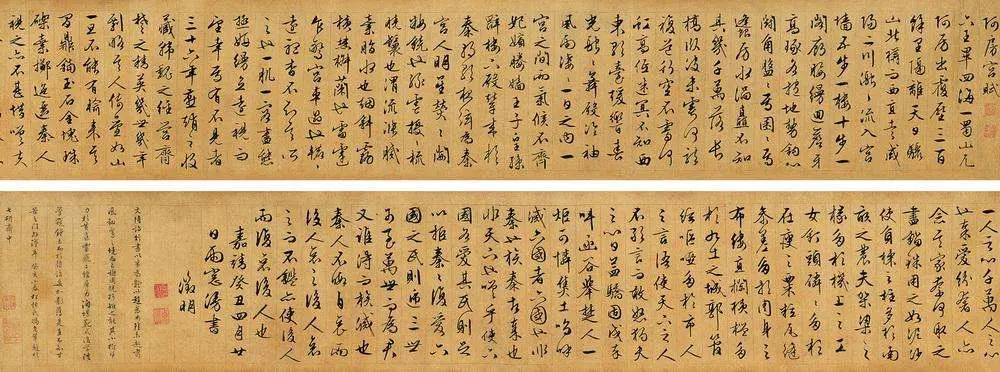 阿房宮賦
六王畢四海一蜀山兀
阿房出覆壓三百
餘里隔離天日驪
山北搆而西直走咸
陽二川溶溶流入宮
墻五步一樓十步一
閣廊腰縵迴簷牙
高啄各抱地勢鈎心
鬬角盤盤焉囷囷焉
蜂房水渦矗不知
其幾千萬落長
橋臥波未雲何龍
複道行空不霽何
虹高低冥迷不知西
東歌臺暖響春
光融融舞殿冷袖
風雨淒淒一日之內一
宮之間而氣候不齊
妃嬪媵嬙王子皇孫
辭樓下殿輦來於
秦朝歌夜絃為秦
宮人明星熒熒開
粧鏡也綠雲擾擾梳
曉鬟也渭流漲膩
棄脂水也烟斜霧
橫焚椒蘭也雷霆
乍驚宮車過也轆轆
遠聽杳不知其所
之也一肌一容盡態
極妍縵立遠視而
望幸焉有不見者
三十六年燕趙之收
藏韓魏之經營齊
楚之精英幾世幾年
剽掠其人倚疊如山
一旦不能有輸來其
間鼎鐺玉石金塊珠
礫棄擲邐迤秦人
視之亦不甚惜嗟乎
一人之心千萬人之心
也秦愛紛奢人亦
念其家奈何取之
盡錙銖用之如泥沙
使負棟之柱多於南
畝之農夫架梁之
椽多於機上之工
女釘頭磷磷多於
在庾之粟粒瓦縫
參差多於周身之
帛縷直欄橫檻多
於九土之城郭管
絃嘔啞多於市人
之言語使天下之人
不敢言而敢怒獨夫
之心日益驕固戍卒
叫函谷舉楚人一
炬可憐焦土嗚呼
滅六國者六國也非
秦也族秦者秦也
非天下也嗟乎使六
國各愛其民則足
以拒秦秦復愛六
國之民則遞三世
可至萬世而為君
又誰得而族滅也
秦人不暇自哀而
後人哀之後人哀
之而不鑑亦使後人
而復哀後人也
嘉靖癸丑四月廿
日雨窓漫書
徵明